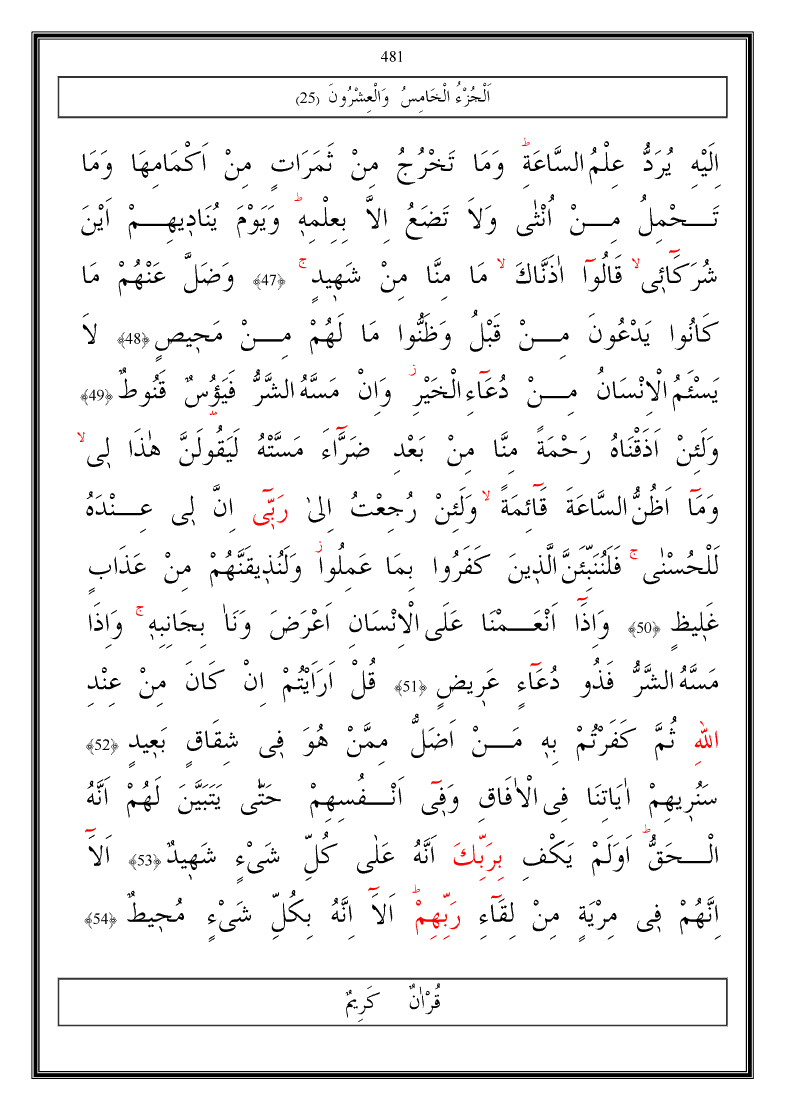 481
اَلْجُزْءُ الْخَامِسُ وَالْعِشْرُونَ (25)
اِلَيْهِ يُرَدُّ عِلْمُ السَّاعَةِۜ وَمَا تَخْرُجُ مِنْ ثَمَرَاتٍ مِنْ اَكْمَامِهَا وَمَا
تَـــحْمِلُ مِـــنْ اُنْثٰى وَلَا تَضَعُ اِلَّا بِعِلْمِه۪ۜ وَيَوْمَ يُنَاد۪يهِـــمْ اَيْنَ
شُرَكَٓائ۪ىۙ قَالُٓوا اٰذَنَّاكَۙ مَا مِنَّا مِنْ شَه۪يدٍۚ ﴿47﴾ وَضَلَّ عَنْهُمْ مَا
كَانُوا يَدْعُونَ مِـــنْ قَبْلُ وَظَنُّوا مَا لَهُمْ مِـــنْ مَح۪يصٍ ﴿48﴾ لَا
يَسْـَٔمُ الْاِنْسَانُ مِـــنْ دُعَٓاءِ الْخَيْرِۘ وَاِنْ مَسَّهُ الشَّرُّ فَيَؤُ۫سٌ قَنُوطٌ ﴿49﴾
وَلَئِنْ اَذَقْنَاهُ رَحْمَةً مِنَّا مِنْ بَعْدِ ضَرَّٓاءَ مَسَّتْهُ لَيَقُولَنَّ هٰذَا ل۪ىۙ
وَمَٓا اَظُنُّ السَّاعَةَ قَٓائِمَةًۙ وَلَئِنْ رُجِعْتُ اِلٰى رَبّ۪ٓى اِنَّ ل۪ى عِـــنْدَهُ
لَلْحُسْنٰىۚ فَلَنُنَبِّئَنَّ الَّذ۪ينَ كَفَرُوا بِمَا عَمِلُواۘ وَلَنُذ۪يقَنَّهُمْ مِنْ عَذَابٍ
غَل۪يظٍ ﴿50﴾ وَاِذَٓا اَنْعَـــمْنَا عَلَى الْاِنْسَانِ اَعْرَضَ وَنَاٰ بِجَانِبِه۪ۚ وَاِذَا
مَسَّهُ الشَّرُّ فَذُو دُعَٓاءٍ عَر۪يضٍ ﴿51﴾ قُلْ اَرَاَيْتُمْ اِنْ كَانَ مِنْ عِنْدِ
اللّٰهِ ثُمَّ كَفَرْتُمْ بِه۪ مَـــنْ اَضَلُّ مِمَّنْ هُوَ ف۪ى شِقَاقٍ بَع۪يدٍ ﴿52﴾
سَنُر۪يهِمْ اٰيَاتِنَا فِى الْاٰفَاقِ وَف۪ٓى اَنْـــفُسِهِمْ حَتّٰى يَتَبَيَّنَ لَهُمْ اَنَّهُ
الْـــحَقُّۜ اَوَلَمْ يَكْفِ بِرَبِّكَ اَنَّهُ عَلٰى كُلِّ شَىْءٍ شَه۪يدٌ ﴿53﴾ اَلَٓا
اِنَّهُمْ ف۪ى مِرْيَةٍ مِنْ لِقَٓاءِ رَبِّهِمْۜ اَلَٓا اِنَّهُ بِكُلِّ شَىْءٍ مُح۪يطٌ ﴿54﴾
قُرْاٰنٌ كَرِيمٌ